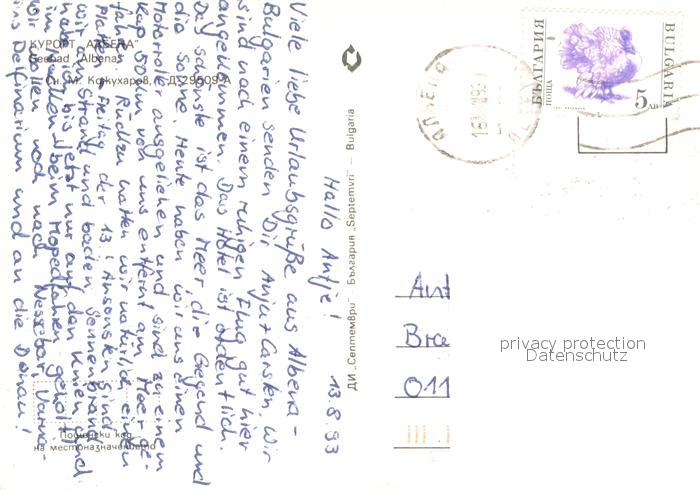 КУРОРТ „АЛБЕНА“
Seebad „Albena“
Сн. М. Кожухаров, Д-29509-А
Hallo Antje!
13.8.93
Viele liebe Urlaubsgrüße aus Albena –
Bulgarien senden Dir Anju + Carsten. Wir
sind nach einem ruhigen Flug gut hier
angekommen. Das Hotel ist ordentlich.
Das schönste ist das Meer, die Gegend und
die Sonne. Heute haben wir uns einen
Motorroller ausgeliehen und sind zu einem
Kap 50 km von uns entfernt am Meer ge-
fahren. Rückzu hatten wir natürlich einen
Platten – Freitag der 13.! Ansonsten sind
wir am Strand und baden, Sonnenbrand
haben wir bis jetzt nur auf den Knien und
im beim Mopedfahren geholt.
Wir wollen noch nach Nessebar, Varna-
ins Delfinarium und an die Donau!
Пощенски код
на местоназначението
ДИ „Септември“ България „Septemvri“ – Bulgaria
БЪЛГАРИЯ
ПОЩА
BULGARIA
5 ЛВ
АЛБЕНА
Ant
Bre
011
privacy protection
Datenschutz